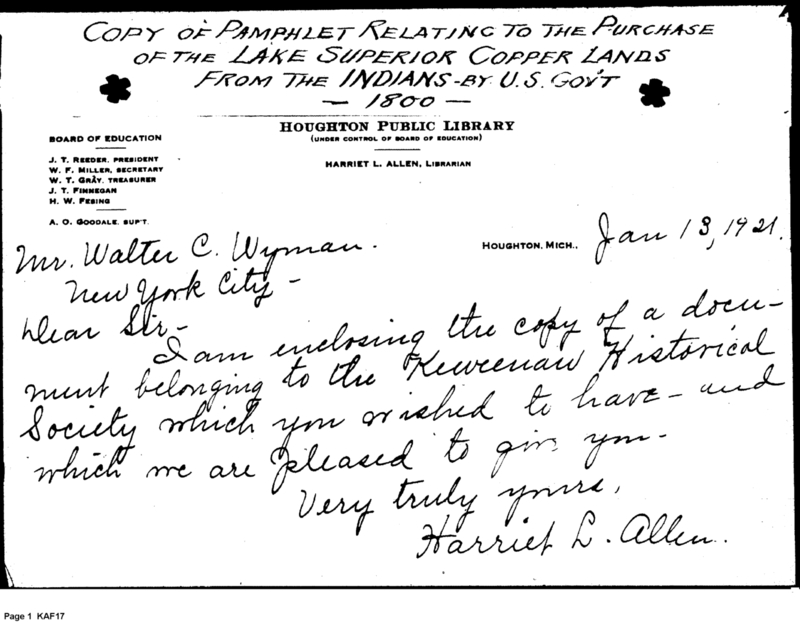 COPY OF PAMPHLET RELATING TO THE PURCHASE
OF THE LAKE SUPERIOR COPPER LANDS
FROM THE INDIANS-BY U.S. GOV'T
— 1800 —
HOUGHTON PUBLIC LIBRARY
(UNDER CONTROL OF BOARD OF EDUCATION)
HARRIET L. ALLEN, LIBRARIAN
BOARD OF EDUCATION
J. T. REEDER, PRESIDENT
W. F. MILLER, SECRETARY
W. T. GRAY, TREASURER
J. T. FINNEGAN
H. W. FESING
A. O. GOODALE, SUP'T.
HOUGHTON, MICH., Jan 13, 1921.
Mr. Walter C. Wyman.
New York City -
Dear Sir -
I am enclosing the copy of a docu-
ment belonging to the Keweenaw Historical
Society which you wished to have - and
which we are pleased to give you -
Very truly yours,
Harriet L. Allen.
Page 1 KAF17